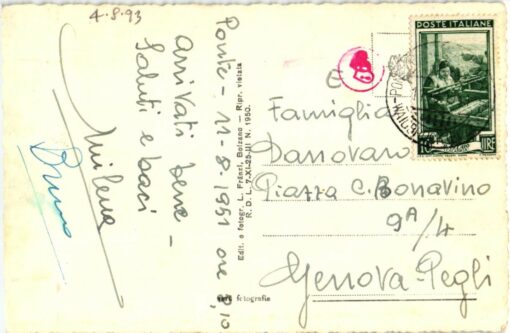 4.8.93
Ponte - 11-8-1951 ore 9,10
arrivati bene -
Saluti e baci
Milena
Bruno
Edit. e fotogr. L. Fränzl, Bolzano - Ripr. vietata
R. D. L. 7-XI-25-III N. 1950.
vera fotografia
POSTE ITALIANE
10 LIRE
Famiglia
Dannovaro
Piazza C. Bonavino
9A/4
Genova-Pegli